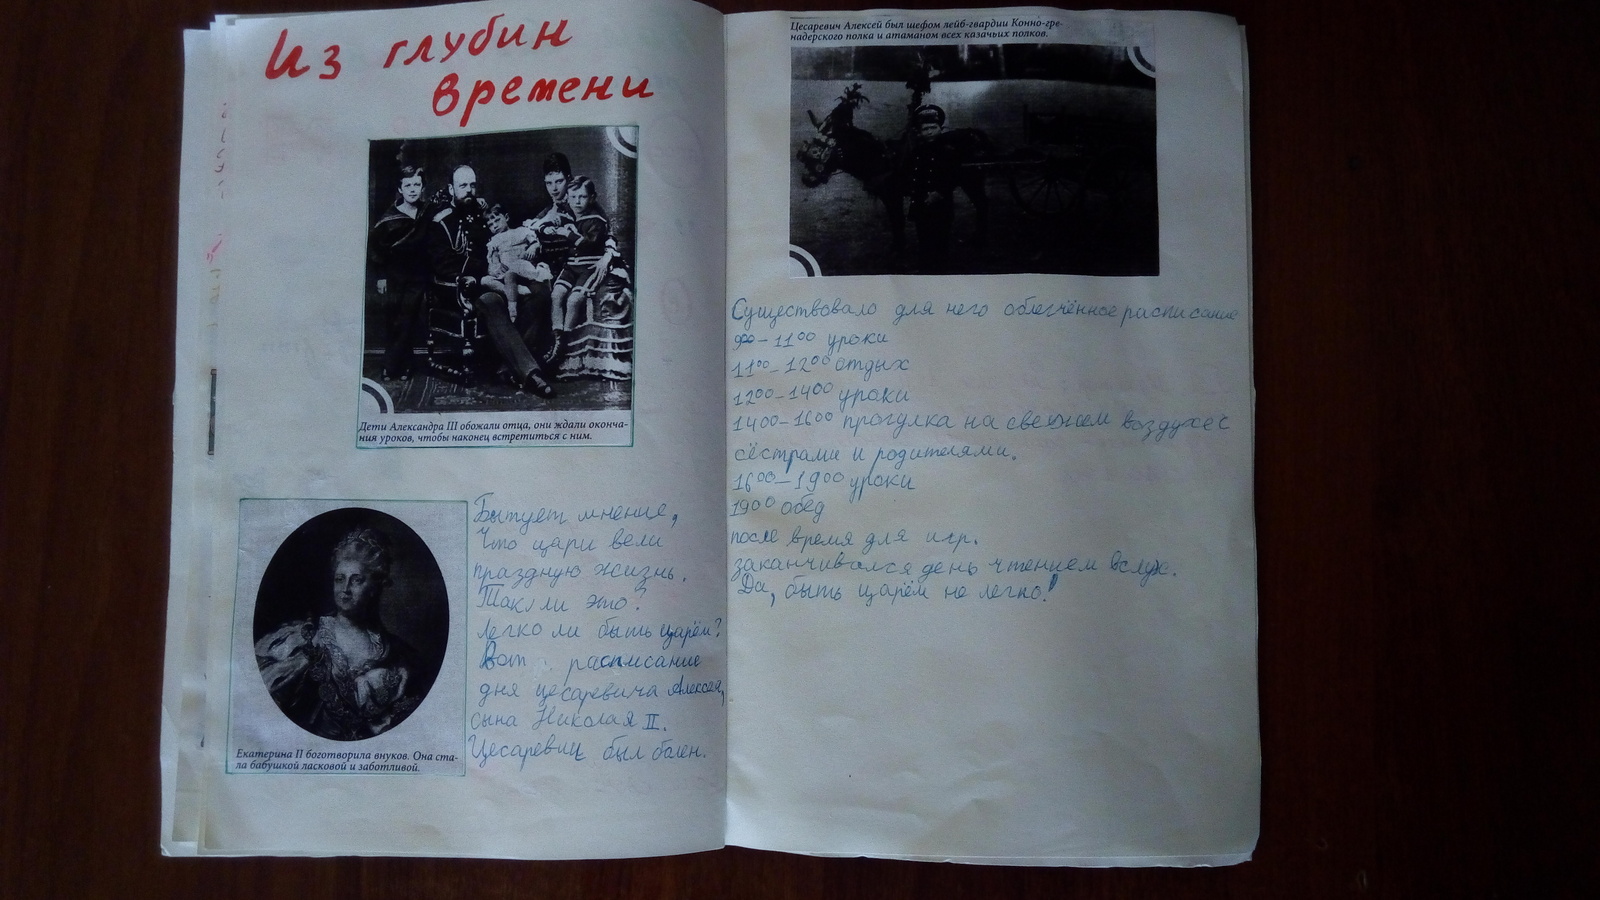 Из глубин
времени
Дети Александра III обожали отца, они ждали оконча-
ния уроков, чтобы наконец встретиться с ним.
Екатерина II боготворила внуков. Она ста-
ла бабушкой ласковой и заботливой.
Бытует мнение,
что цари вели
праздную жизнь.
Так ли это?
Легко ли быть царём?
Вот расписание
дня цесаревича Алексея,
сына Николая II.
Цесаревич был болен.
Цесаревич Алексей был шефом лейб-гвардии Конно-гре-
надерского полка и атаманом всех казачьих полков.
Существовало для него облегчённое расписание
900-1100 уроки
1100-1200 отдых
1200-1400 уроки
1400-1600 прогулка на свежем воздухе с
сёстрами и родителями.
1600-1900 уроки
1900 обед
после время для игр.
заканчивался день чтением вслух.
Да, быть царём не легко!